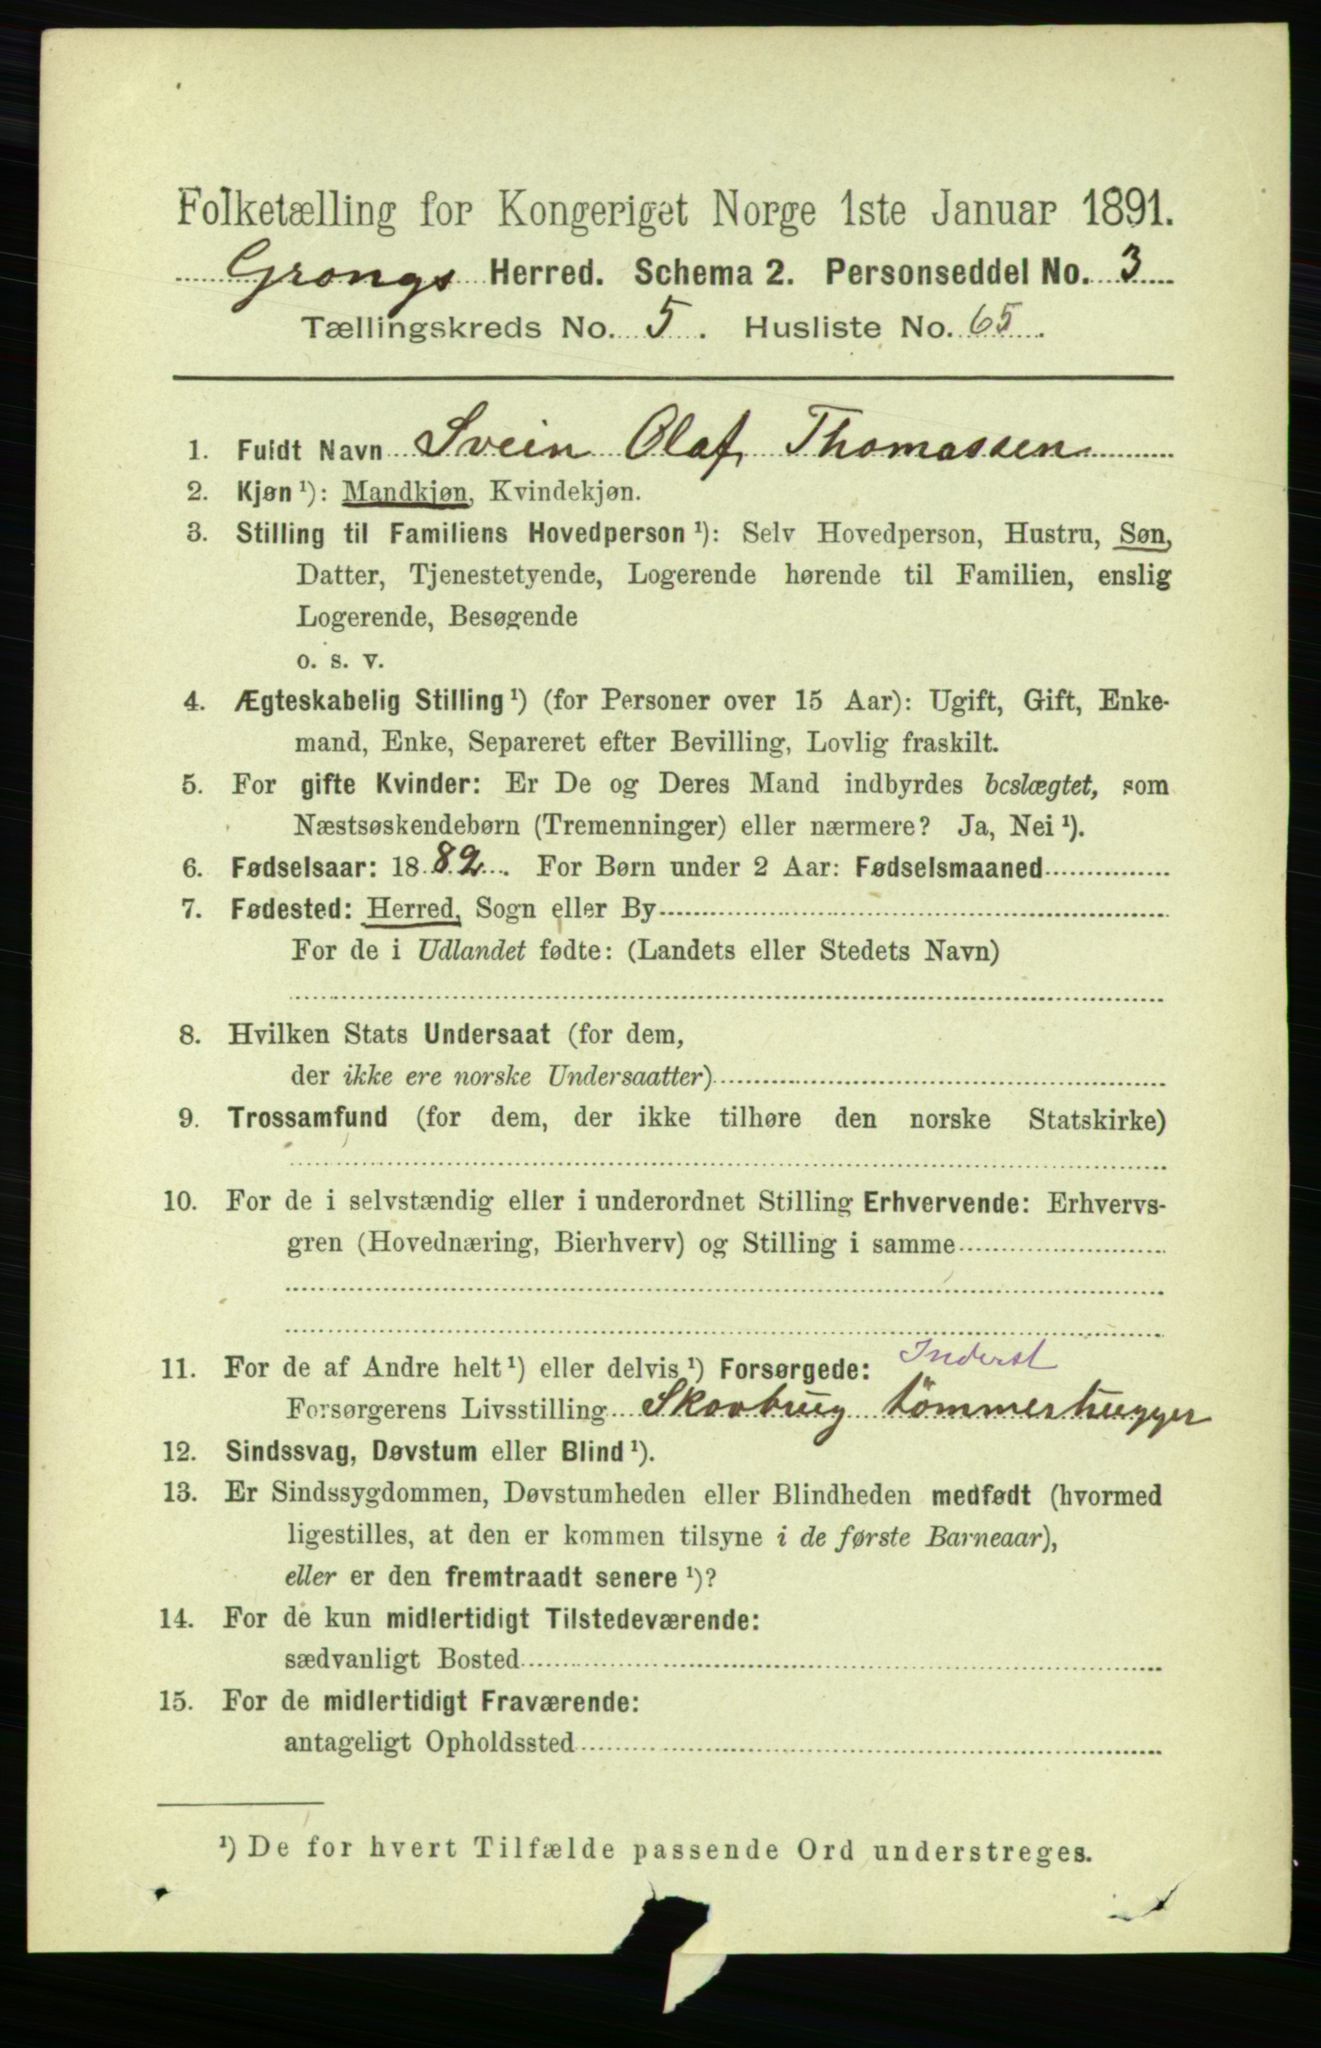 Folketælling for Kongeriget Norge 1ste Januar 1891.
Grongs Herred. Schema 2. Personseddel No. 3
Tællingskreds No. 5. Husliste No. 65.
1. Fuldt Navn Svein Olaf Thomassen
2. Kjøn¹): Mandkjøn, Kvindekjøn.
3. Stilling til Familiens Hovedperson¹): Selv Hovedperson, Hustru, Søn,
Datter, Tjenestetyende, Logerende hørende til Familien, enslig
Logerende, Besøgende
o. s. v.
4. Ægteskabelig Stilling¹) (for Personer over 15 Aar): Ugift, Gift, Enke-
mand, Enke, Separeret efter Bevilling, Lovlig fraskilt.
5. For gifte Kvinder: Er De og Deres Mand indbyrdes beslægtet, som
Næstsøskendebørn (Tremenninger) eller nærmere? Ja, Nei¹).
6. Fødselsaar: 1882. For Børn under 2 Aar: Fødselsmaaned
7. Fødested: Herred, Sogn eller By
For de i Udlandet fødte: (Landets eller Stedets Navn)
8. Hvilken Stats Undersaat (for dem,
der ikke ere norske Undersaatter)
9. Trossamfund (for dem, der ikke tilhøre den norske Statskirke)
10. For de i selvstændig eller i underordnet Stilling Erhvervende: Erhvervs-
gren (Hovednæring, Bierhverv) og Stilling i samme
Inderst
11. For de af Andre helt¹) eller delvis¹) Forsørgede:
Forsørgerens Livsstilling Skovbrug tömmerhugger
12. Sindssvag, Døvstum eller Blind¹).
13. Er Sindssygdommen, Døvstumheden eller Blindheden medfødt (hvormed
ligestilles, at den er kommen tilsyne i de første Barneaar),
eller er den fremtraadt senere¹)?
14. For de kun midlertidigt Tilstedeværende:
sædvanligt Bosted
15. For de midlertidigt Fraværende:
antageligt Opholdssted
¹) De for hvert Tilfælde passende Ord understreges.